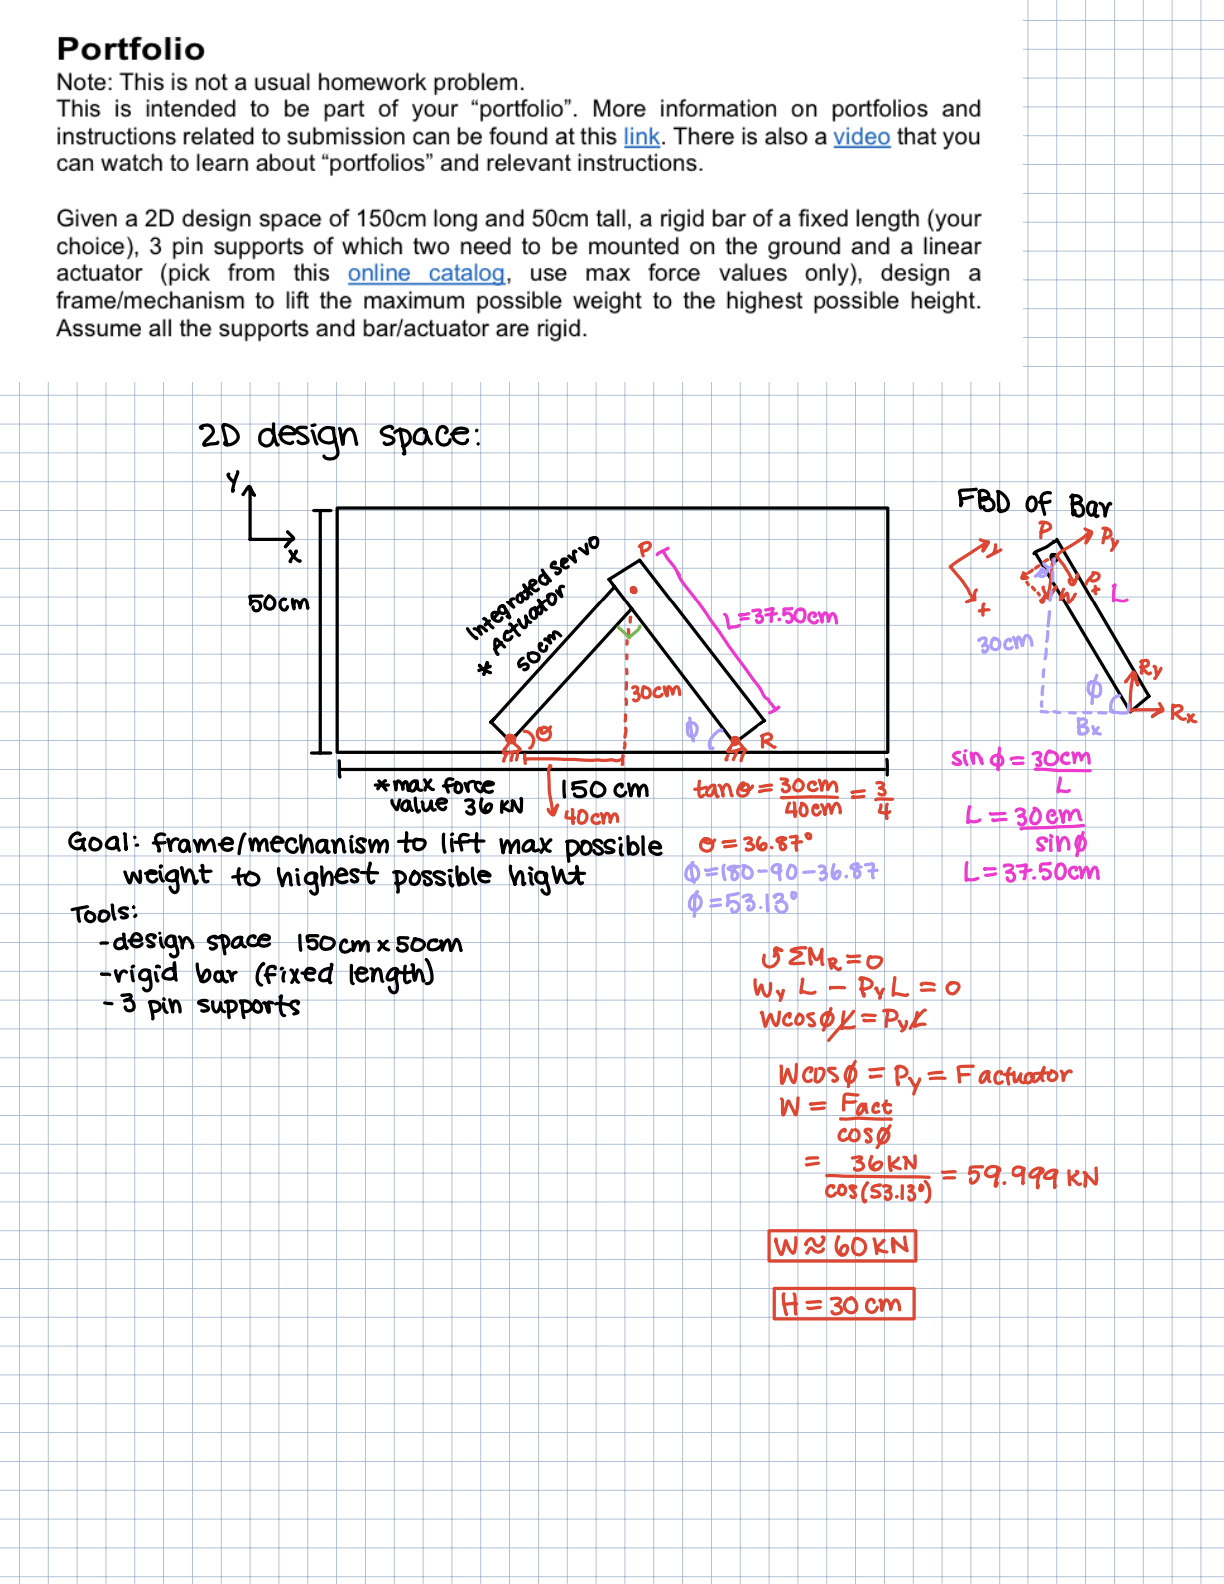 Portfolio
Note: This is not a usual homework problem.
This is intended to be part of your “portfolio”. More information on portfolios and
instructions related to submission can be found at this link. There is also a video that you
can watch to learn about “portfolios” and relevant instructions.
Given a 2D design space of 150cm long and 50cm tall, a rigid bar of a fixed length (your
choice), 3 pin supports of which two need to be mounted on the ground and a linear
actuator (pick from this online catalog, use max force values only), design a
frame/mechanism to lift the maximum possible weight to the highest possible height.
Assume all the supports and bar/actuator are rigid.
2D design space:
Y
x
50cm
Integrated servo
* Actuator
50cm
P
L=37.50cm
30cm
θ
ϕ
R
*max force
value 36 KN
150 cm
40cm
tanθ = 30cm/40cm = 3/4
θ = 36.87°
ϕ=180-90-36.87
ϕ=53.13°
FBD of Bar
P
Py
y
+
W
Px
L
30cm
ϕ
Ry
Rx
Bx
sin ϕ = 30cm/L
L = 30cm/sinϕ
L=37.50cm
Goal: frame/mechanism to lift max possible
weight to highest possible hight
Tools:
-design space 150cm x 50cm
-rigid bar (fixed length)
- 3 pin supports
↺ ΣMR = 0
Wy L - PyL = 0
WcosϕL = PyL
Wcosϕ = Py = Factuator
W = Fact/cosϕ
= 36KN/cos(53.13°) = 59.999 KN
W ≈ 60KN
H = 30 cm